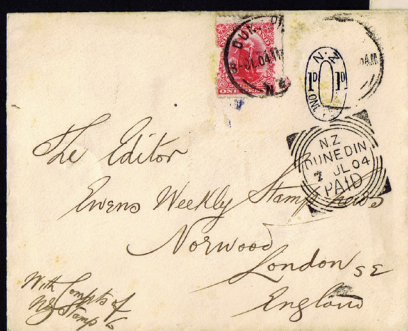 DUN
JL 04
N.Z
ONE
N.Z
1D 1D
ONE
AM
N.Z.
DUNEDIN
2 JL 04
PAID
The Editor
Ewens Weekly Stamp News
Norwood
London SE
England
With Compts of
NZ Stamp Co